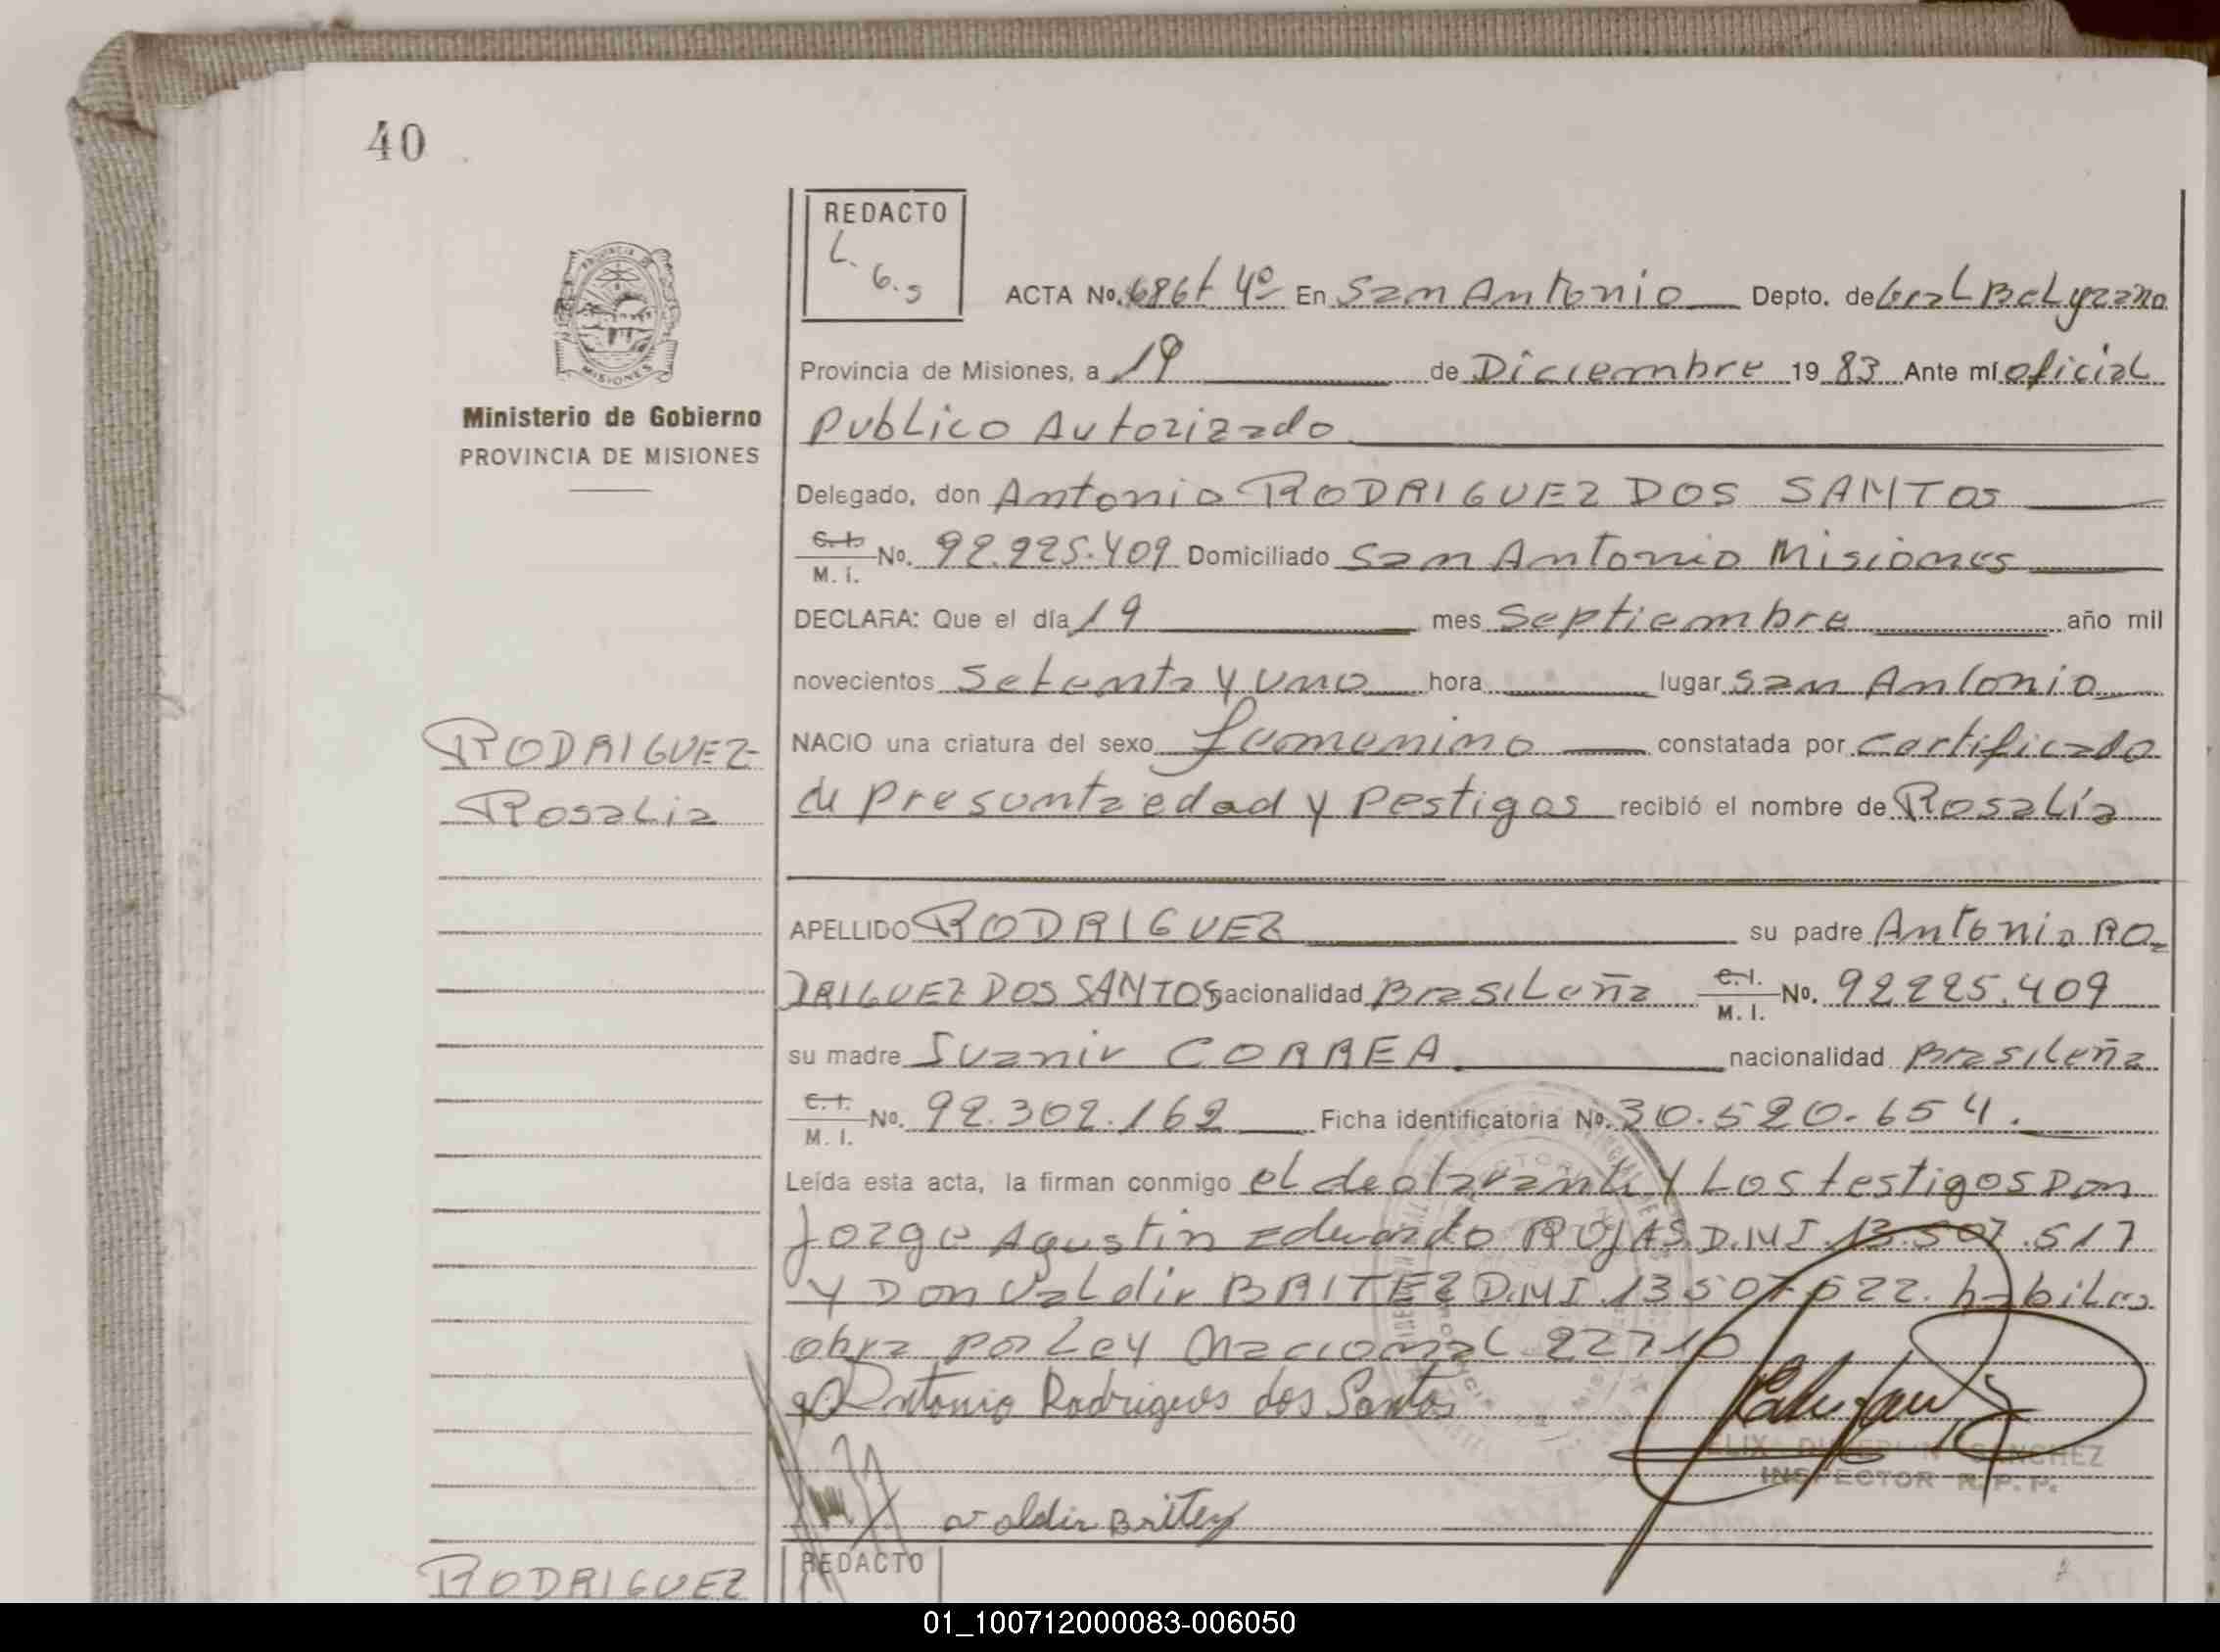 40
REDACTO
L. G. S
ACTA No. 686 t 4º En San Antonio Depto. de Gral Belgrano
Provincia de Misiones, a 19 de Diciembre 19 83 Ante mí oficial
Ministerio de Gobierno
PROVINCIA DE MISIONES
Publico Autorizado
Delegado, don Antonio RODRIGUEZ DOS SANTOS
C.I. M. I. No. 92.225.409 Domiciliado San Antonio Misiones
DECLARA: Que el día 19 mes Septiembre año mil
novecientos setenta y uno hora lugar San Antonio
RODRIGUEZ
Rosalia
NACIO una criatura del sexo femenino constatada por certificado
de presunta edad y testigos recibió el nombre de Rosalía
APELLIDO RODRIGUEZ su padre Antonio RO-
DRIGUEZ DOS SANTOS nacionalidad Brasileña C.I. M. I. No. 92225.409
su madre CORREA nacionalidad Brasileña
C.I. M. I. No. 92.302.162 Ficha identificatoria No. 30.520.654.
Leída esta acta, la firman conmigo el declarante y Los testigos Don
Jorge Agustin Eduardo ROJAS D.N.I. 13.507.517
y Don Valdir BRITEZ D.N.I. 13507522. habiles
obra por Ley Nacional 22710
Antonio Rodrigues dos Santos
SANCHEZ
INSPECTOR R. P. P.
valdir Britez
RODRIGUEZ
REDACTO
01_100712000083-006050